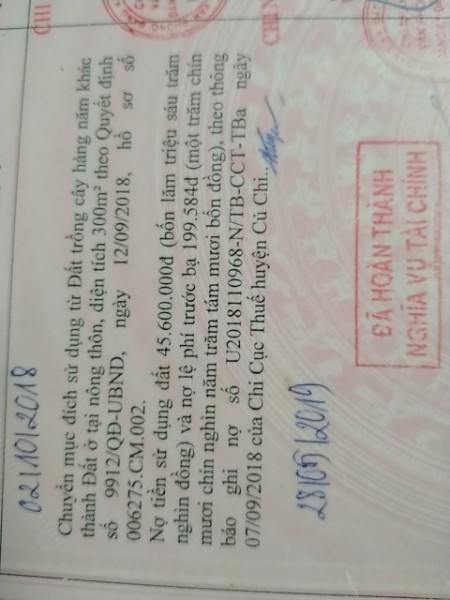 CHI
CHI N
02/10/2018
Chuyển mục đích sử dụng từ Đất trồng cây hàng năm khác
thành Đất ở tại nông thôn, diện tích 300m² theo Quyết định
số 9912/QĐ-UBND, ngày 12/09/2018, hồ sơ số
006275.CM.002.
Nợ tiền sử dụng đất 45.600.000đ (bốn lăm triệu sáu trăm
nghìn đồng) và nợ lệ phí trước bạ 199.584đ (một trăm chín
mươi chín nghìn năm trăm tám mươi bốn đồng), theo thông
báo ghi nợ số U2018110968-N/TB-CCT-TBa ngày
07/09/2018 của Chi Cục Thuế huyện Củ Chi..
28/05/2019
ĐÃ HOÀN THÀNH
NGHĨA VỤ TÀI CHÍNH